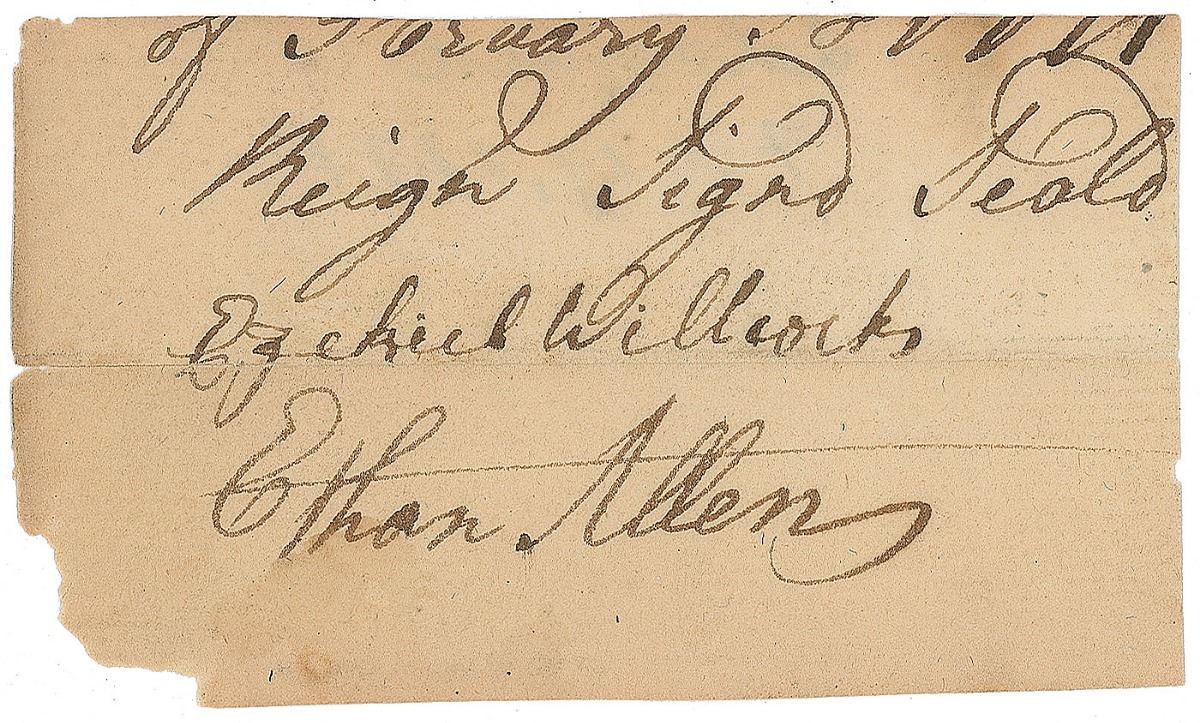 of Febru­ary
Reign Signd Seald
Ezekiel Willcocks
Ethan Allen